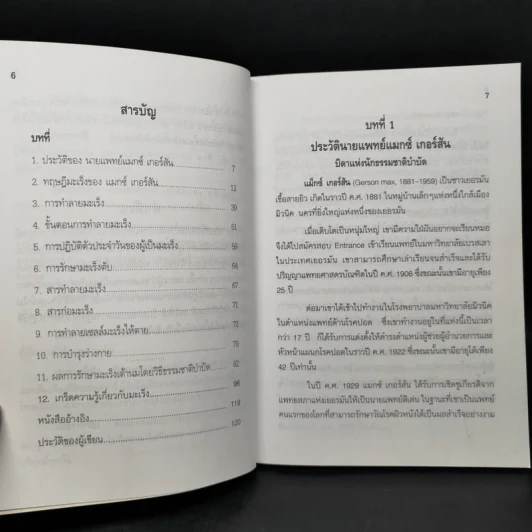 6
สารบัญ
บทที่
1. ประวัติของ นายแพทย์แมกซ์ เกอร์สัน 7
2. ทฤษฎีมะเร็งของ แมกซ์ เกอร์สัน 12
3. การทำลายมะเร็ง 39
4. ขั้นตอนการทำลายมะเร็ง 51
5. การปฏิบัติตัวประจำวันของผู้เป็นมะเร็ง 59
6. การรักษามะเร็งตับ 64
7. สารทำลายมะเร็ง 67
8. สารก่อมะเร็ง 71
9. การทำลายเซลล์มะเร็งให้ตาย 73
10. การบำรุงร่างกาย 79
11. ผลการรักษามะเร็งเต้านมโดยวิธีธรรมชาติบำบัด 92
12. เกร็ดความรู้เกี่ยวกับมะเร็ง 96
หนังสืออ้างอิง 119
ประวัติของผู้เขียน 120
7
บทที่ 1
ประวัตินายแพทย์แมกซ์ เกอร์สัน
บิดาแห่งนักธรรมชาติบำบัด
แม็กซ์ เกอร์สัน (Gerson max, 1881-1959) เป็นชาวเยอรมัน
เชื้อสายยิว เกิดในราวปี ค.ศ. 1881 ในหมู่บ้านเล็กๆแห่งหนึ่งใกล้เมือง
มิวนิค นครที่ยิ่งใหญ่แห่งหนึ่งของเยอรมัน
เมื่อเติบโตเป็นหนุ่มใหญ่ เขามีความใฝ่ฝันอยากจะเรียนหมอ
จึงได้ไปสมัครสอบ Entrance เข้าเรียนแพทย์ในมหาวิทยาลัยเบรสเลา
ในประเทศเยอรมัน เขาสามารถศึกษาเล่าเรียนจนสำเร็จและได้รับ
ปริญญาแพทยศาสตรบัณฑิตในปี ค.ศ. 1906 ซึ่งขณะนั้นเขามีอายุเพียง
25 ปี
ต่อมาเขาได้เข้าไปทำงานในโรงพยาบาลมหาวิทยาลัยมิวนิค
ในตำแหน่งแพทย์ด้านโรคปอด ซึ่งเขาทำงานอยู่ในที่แห่งนี้เป็นเวลา
กว่า 17 ปี ก็ได้รับการแต่งตั้งให้ดำรงตำแหน่งผู้ช่วยผู้อำนวยการและ
หัวหน้าแผนกโรคปอดในราวปี ค.ศ. 1922 ซึ่งขณะนั้นเขามีอายุได้เพียง
42 ปีเท่านั้น
ในปี ค.ศ. 1929 แมกซ์ เกอร์สัน ได้รับการเชิดชูเกียรติจาก
แพทยสภาแห่งเยอรมันให้เป็นนายแพทย์ดีเด่น ในฐานะที่เขาเป็นแพทย์
คนแรกของโลกที่สามารถรักษาวัณโรคผิวหนังได้เป็นผลสำเร็จอย่างงาม